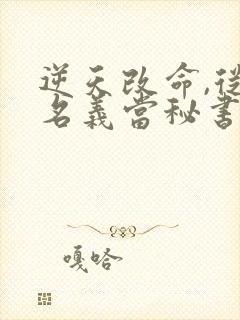 逆天改命,從
名義當秘書
嘎哈